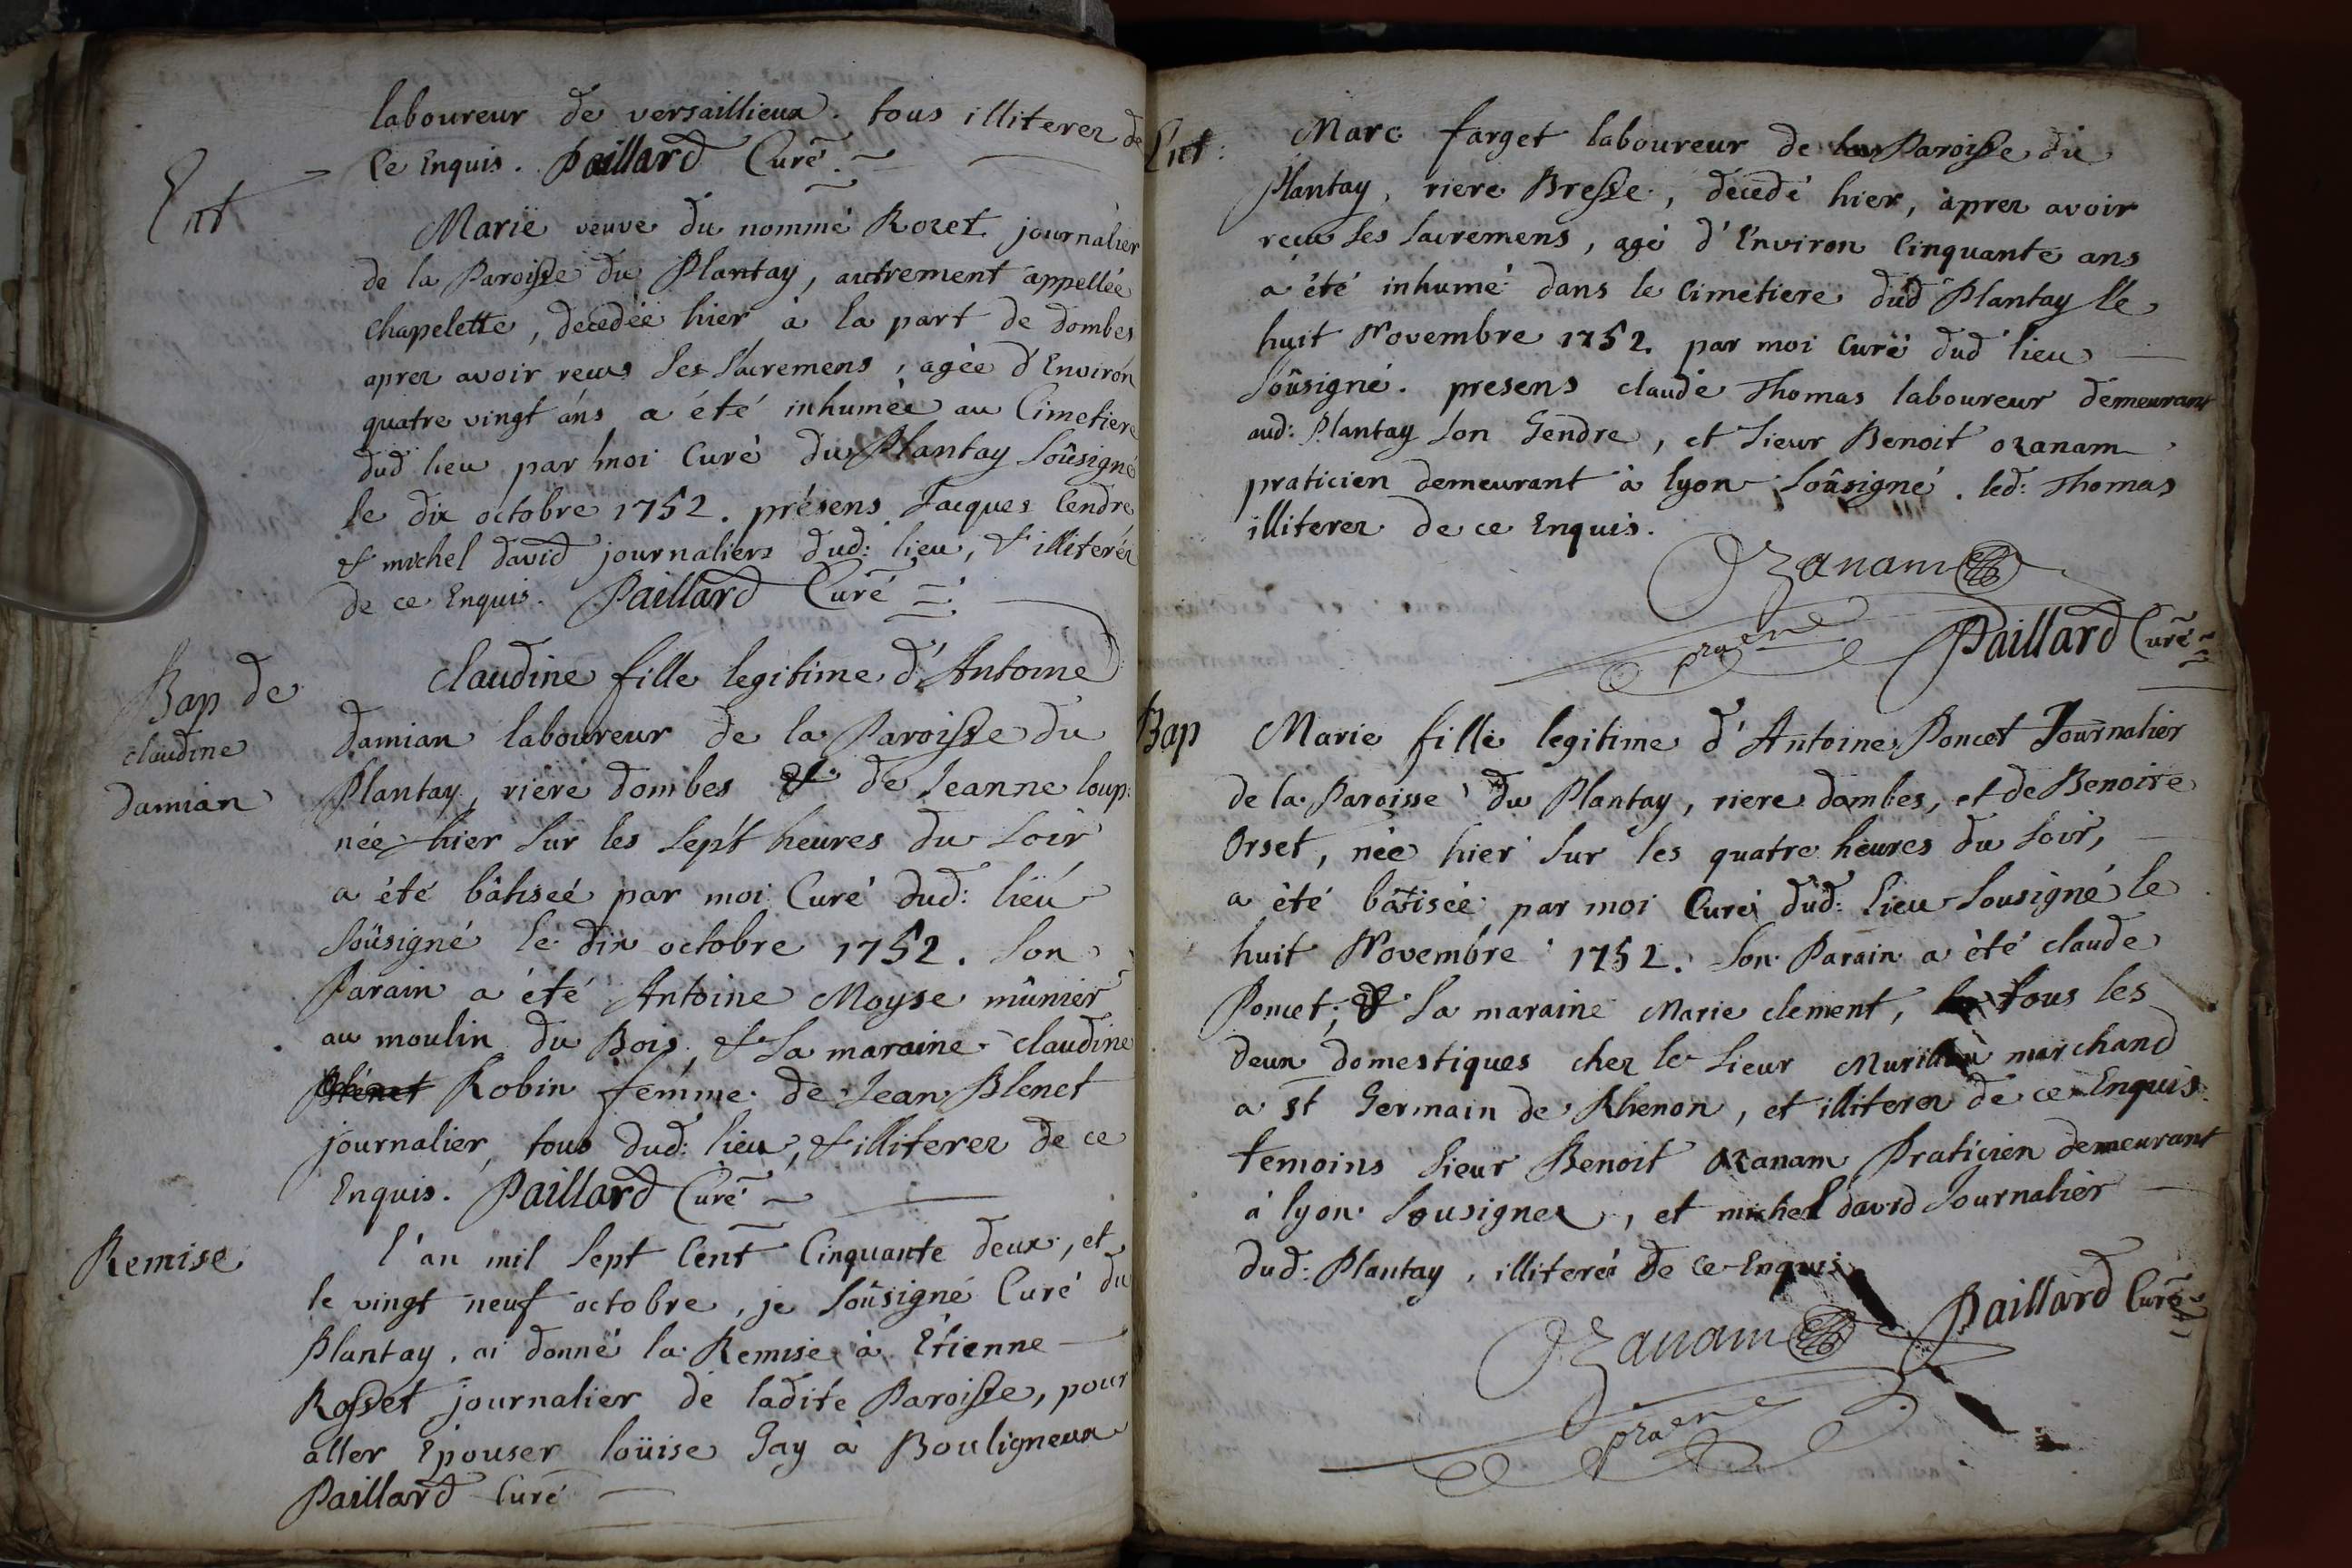 laboureur de versaillieux. tous illiterez de
ce Enquis. Paillard Curé.
Ent
Marie veuve du nommé Rozet journalier
de la Paroisse du Plantay, autrement appellée
chapelette, decedée hier à la part de dombes
aprez avoir recus ses sacremens, agée d'Environ
quatre vingt ans a été inhumée au Cimetiere
dud lieu par moi Curé du Plantay soûsigné
le dix octobre 1752. présens Jacques Cendre
& michel david journaliers dud: lieu, & illiteréz
de ce Enquis. Paillard Curé
Bap de
claudine
damian
claudine fille legitime d'Antoine
damian laboureur de la Paroisse du
Plantay, riere dombes & de Jeanne loup:
née hier sur les sept heures du soir
a été bâtiseé par moi Curé dud: lieu
soüsigné le dix octobre 1752. son
Parain a été Antoine Moyse mûnier
au moulin du Bois, & sa maraine claudine
Blenet Robin femme de Jean Blenet
journalier, tous dud: lieu, & illiterez de ce
Enquis. Paillard Curé
Remise
l'an mil sept Cent Cinquante deux, et
le vingt neuf octobre, je soûsigné Curé du
Plantay, ai donné la Remise à Etienne
Rosset journalier de ladite Paroisse, pour
aller Epouser loüise Gay à Bouligneux
Paillard Curé
Ent:
Marc farget laboureur de la Paroisse du
Plantay, riere Bresse, décedé hier, aprez avoir
recu ses sacremens, agé d'Environ Cinquante ans
a été inhumé dans le Cimetiere dud Plantay le
huit Novembre 1752. par moi Curé dud lieu
soûsigné. presens claude Thomas laboureur demeurant
aud: Plantay son Gendre, et sieur Benoit ozanam
praticien demeurant à lyon soûsigné. led: Thomas
illiterez de ce Enquis.
Ozanam
Paillard Curé
Bap
Marie fille legitime d'Antoine Poncet Journalier
de la Paroisse du Plantay, riere dombes, et de Benoite
Orset, née hier sur les quatre heures du soir,
a été bâtisée par moi Curé dud: lieu sousigné le
huit Novembre 1752. son Parain a été claude
Poncet, & sa maraine Marie clement, tous les
deux domestiques chez le sieur marchand
a st Germain de Rhenon, et illiterez de ce Enquis.
temoins sieur Benoit Ozanam Praticien demeurant
à lyon sousignez, et michel david Journalier
dud: Plantay, illiteré de ce Enquis
Ozanam
Paillard Curé